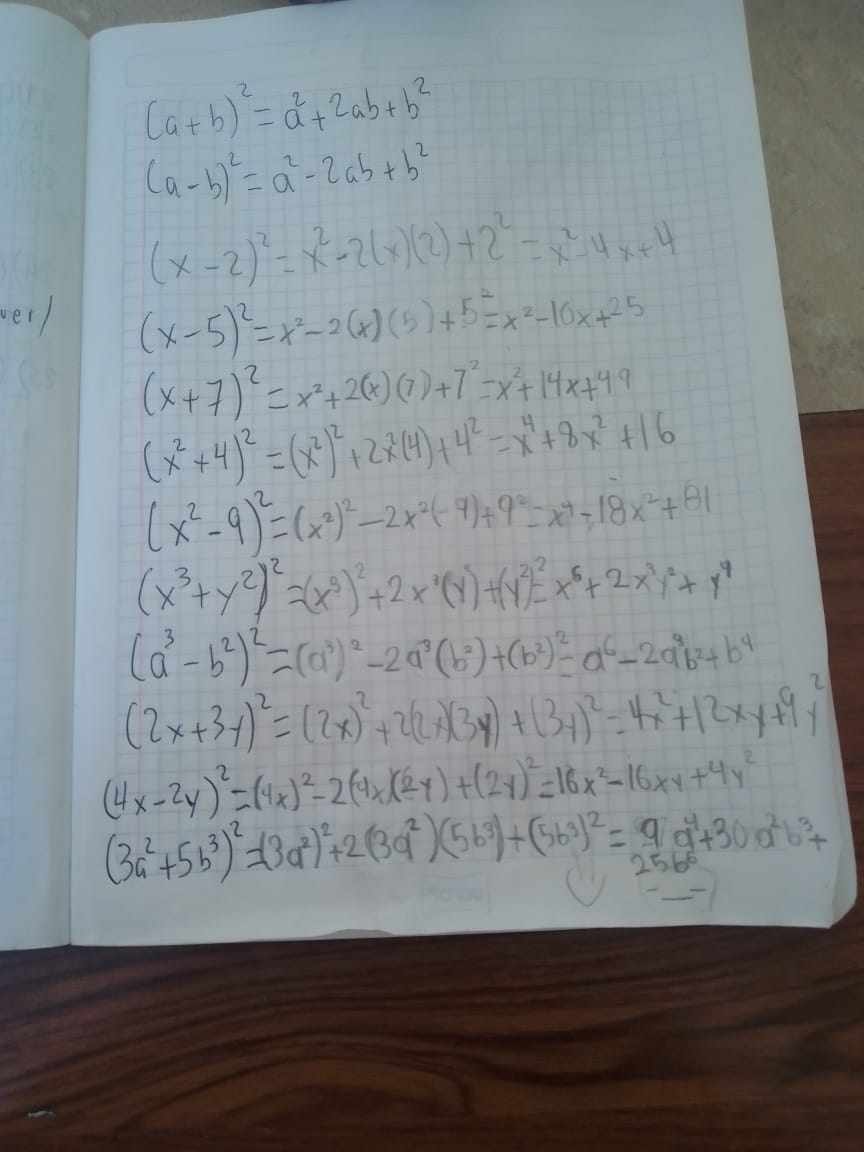 (a+b)² = a²+2ab+b²
(a-b)² = a²-2ab+b²
(x-2)² = x²-2(x)(2)+2² = x²-4x+4
ver/
(x-5)² = x²-2(x)(5)+5² = x²-10x+25
(x+7)² = x²+2(x)(7)+7² = x²+14x+49
(x²+4)² = (x²)²+2x²(4)+4² = x⁴+8x²+16
(x²-9)² = (x²)²-2x²(-9)+9² = x⁴-18x²+81
(x³+y²)² = (x³)²+2x³(y²)+(y²)² = x⁶+2x³y²+y⁴
(a³-b²)² = (a³)²-2a³(b²)+(b²)² = a⁶-2a³b²+b⁴
(2x+3y)² = (2x)²+2(2x)(3y)+(3y)² = 4x²+12xy+9y²
(4x-2y)² = (4x)²-2(4x)(2y)+(2y)² = 16x²-16xy+4y²
(3a²+5b³)² = (3a²)²+2(3a²)(5b³)+(5b³)² = 9a⁴+30a²b³+
25b⁶